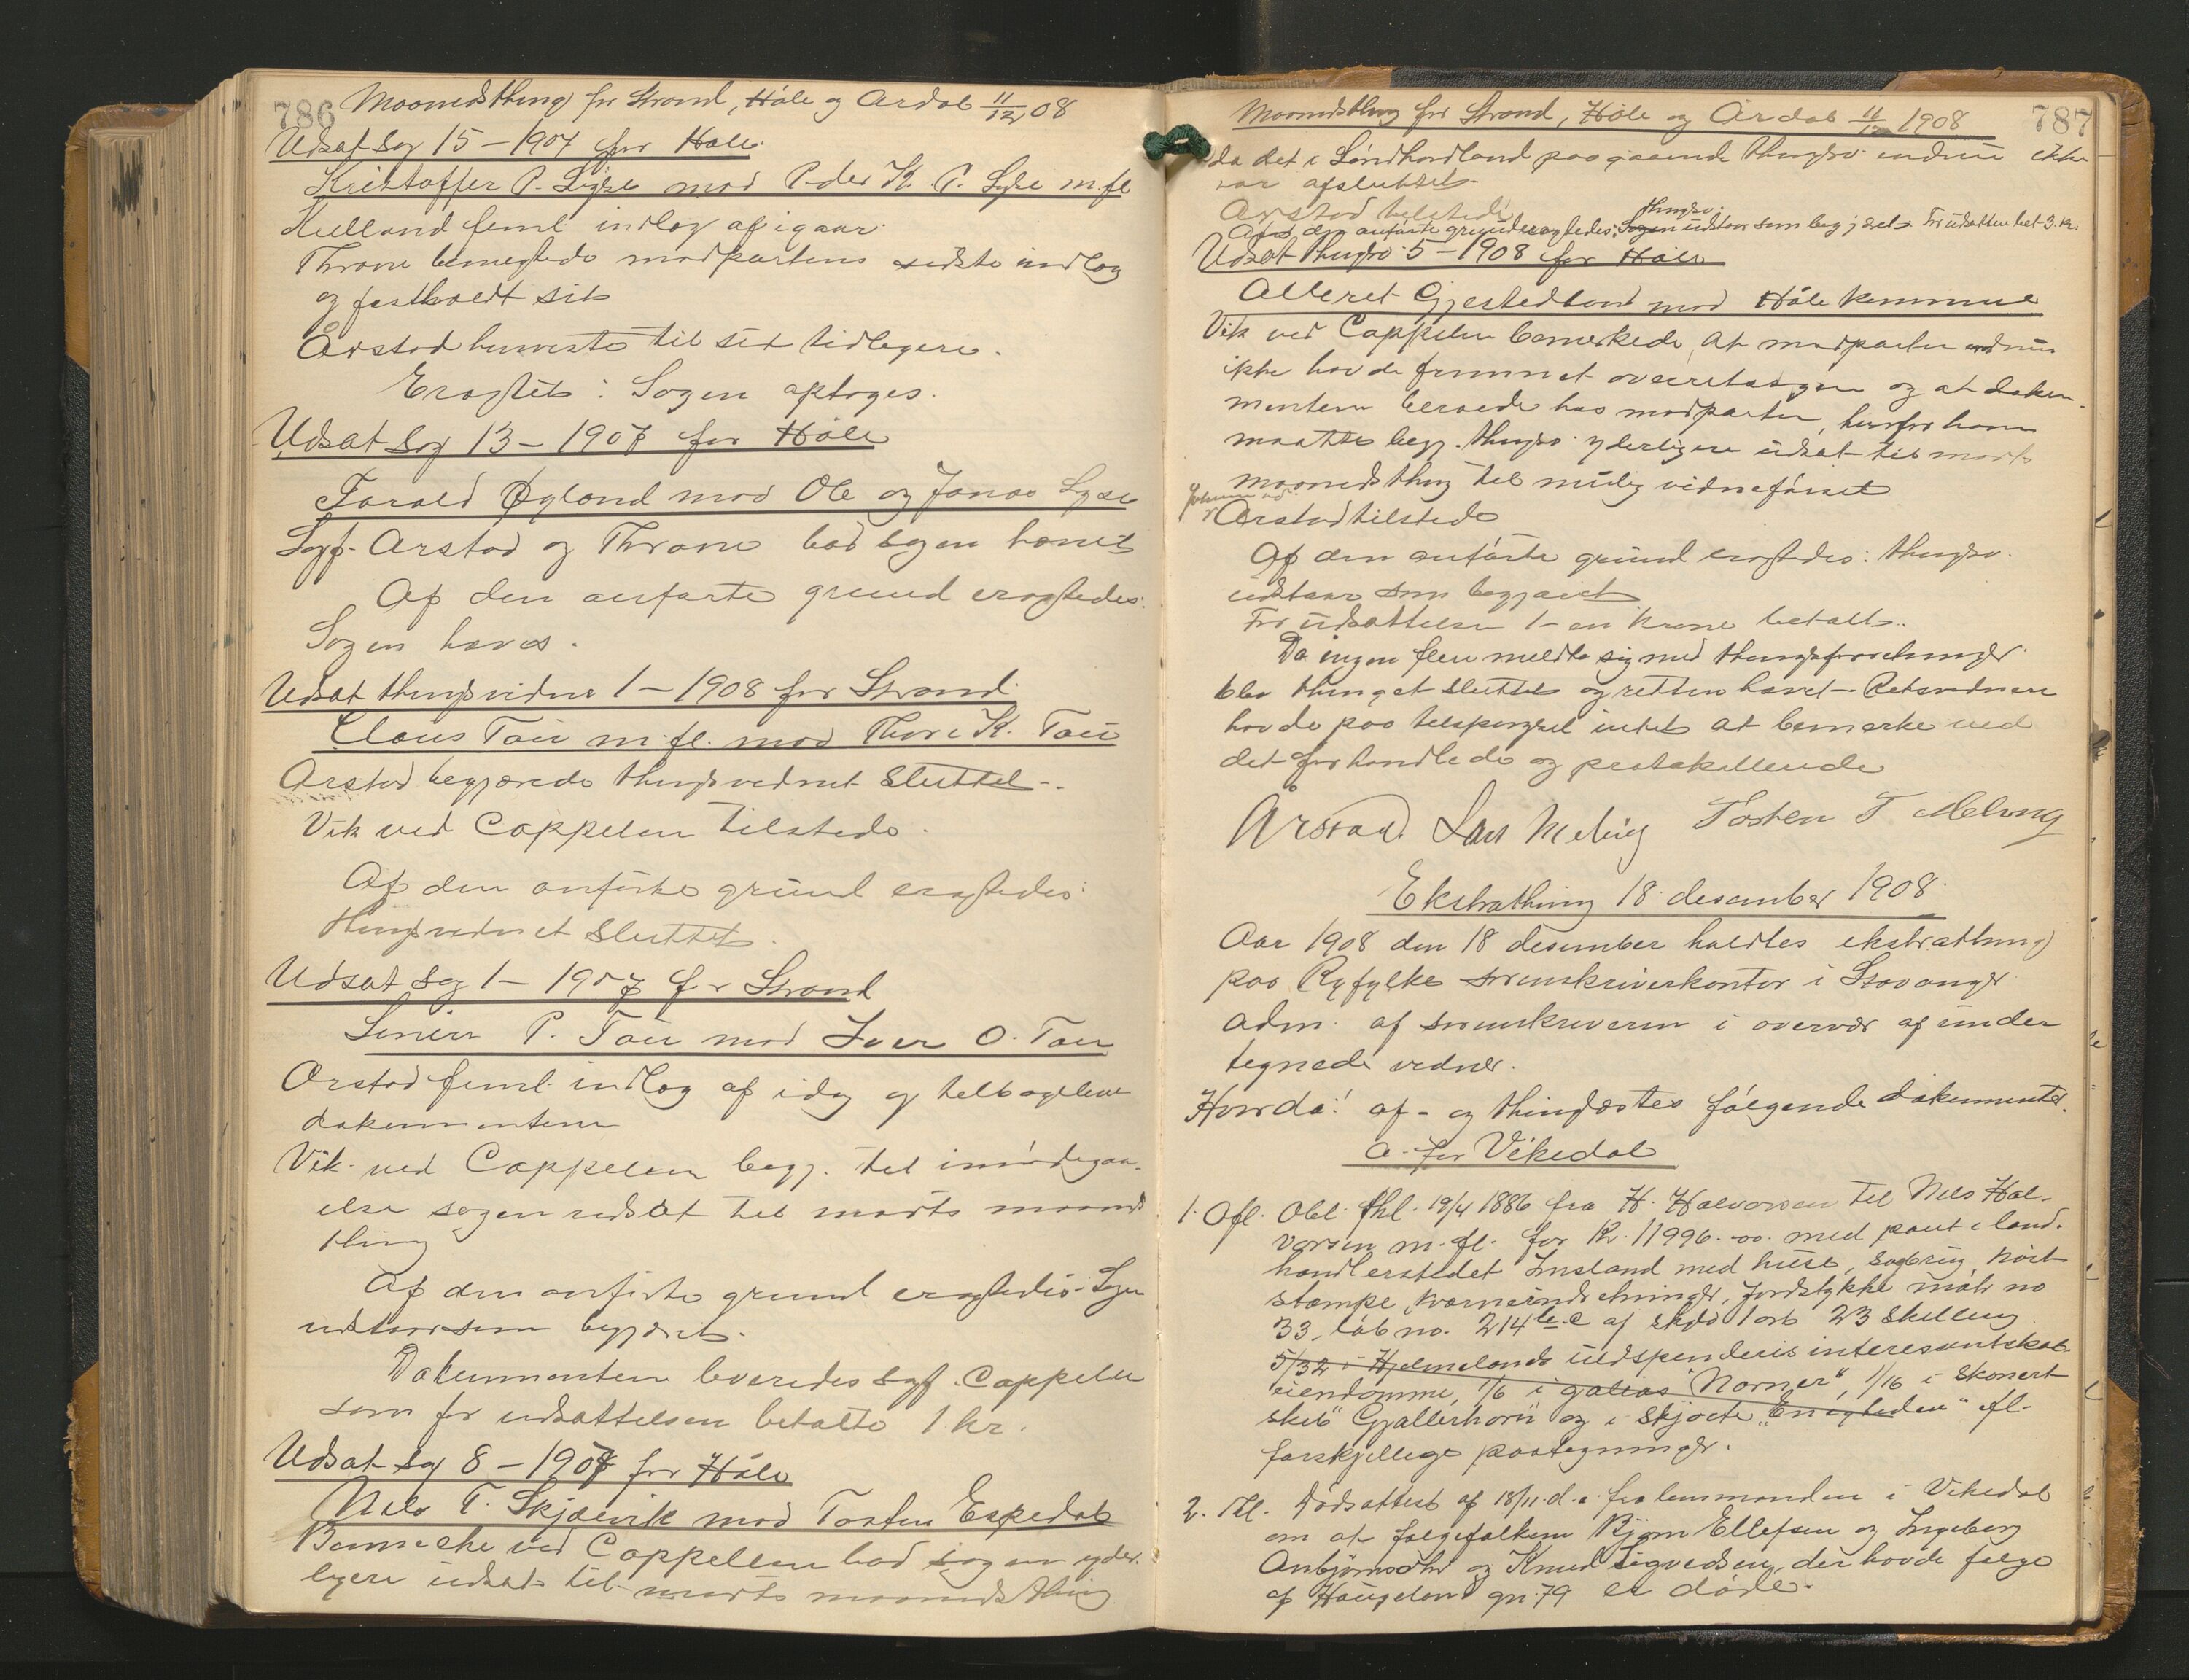 786 Maanedsthing for Strand, Høle og Årdal 11/12 08
Udsat sag 15 – 1907 for Høle
Kristoffer P. Lyse mod Peder K. P. Lyse m.fl
Kielland freml. indlæg af igaar.
Throne benegtede modpartens sidste indlæg
og fastholdt sit
Årstad henviste til sit tidligere.
Eragtet: Sagen optages.
Udsat sag 13 – 1907 for Høle
Tarald Øgland mod Ole og Jonas Lyse
Sagf. Arstad og Throne bad sagen hævet
Af den anførte grund eragtedes:
Sagen hæves.
Udsat thingsvidne 1 – 1908 for Strand
Claus Tau m.fl. mod Thore K. Tau
Arstad begjærede thingsvidnet sluttet.
Vik ved Cappelen tilstede.
Af den anførte grund eragtedes:
thingsvidnet sluttet.
Udsat sag 1 – 1907 for Strand
P. Tau mod Iver O. Tau
Årstad freml. indlæg af idag og tilbageleverede
dokumenterne
Vik ved Cappelen begj. til imødegaa-
else sagen udsat til marts maaneds
thing
Af den anførte grund eragtedes: Sagen
udstaar som begjæret.
Dokumenterne leveredes sagf. Cappelen
som for udsættelsen betalte 1 kr.
Udsat sag 8 – 1907 for Høle
Nils T. Skjælvik mod Tosten Espedal
ved Cappelen bad sagen yder-
ligere udsat til marts maanedsthing
Maanedsthing for Strand, Høle og Årdal 11/12 1908 787
da det i Søndhordland paagaaende thingsv. endnu ikke
var afsluttet.
Årstad tilstede
thingsv.
Af den anførte grund eragtedes: Sagen udstaar som begjæret. For udsættelse bet. 3 kr.
Udsat thingsv. 5 – 1908 for Høle
Alleret Gjestedland mod Høle kommune
Vik ved Cappelen bemerkede, at modparten endnu
ikke havde fremmet overretssagen og at doku-
menterne beroede hos modparten, hvorfor han
maatte begj. thingsv. yderligere udsat til marts
maanedsthing til mulig vidneførsel
Årstad tilstede
Af den anførte grund eragtedes: thingsv.
udstaar som begjæret
For udsættelsen 1 – en krone betalt.
Da ingen flere meldte sig med thingsforretninger
blev thinget sluttet og retten hævet – Retsvidnerne
havde paa tilspørgsel intet at bemerke ved
det forhandlede og protokollerede
Årstad Lars Meling Tosten T Meling
Ekstrathing 18 desember 1908.
Aar 1908 den 18 desember holdtes ekstrathing
paa Ryfylke sorenskriverkontor i Stavanger
adm. af sorenskriveren i overvær af under
tegnede vidner.
Hvorda: af- og thinglæstes følgende dokumenter.
a. for Vikedal
1. Afl. Obl. thl. 19/4 1886 fra H. Halvorsen til Nils Hal-
vorsen m.fl. for Kr. 11996.00 med pant i land-
handlerstedet Imsland med huse, sagbrug,
stampe, kværneindretninger, jordstykke matr no
33, løb no. 214 af skyld 1 ort 23 skilling
5/32 i Hjelmelands interessentskab
eiendomme, 1/6 i galias "Norner", 1/16 i skonert
skib "Gjallerhorn" og i skjøite "Enigheden" efl.
forskjellige paategninger.
2. Thl. Dødsattest af 18/11 d.a. fra lensmanden i Vikedal
om at følgefolkene Bjørn Ellefsen og Ingeborg
Anbjørnsdtr og Knud Sigvedsen, der havde følge
af Haugeland gn. 79 er døde.